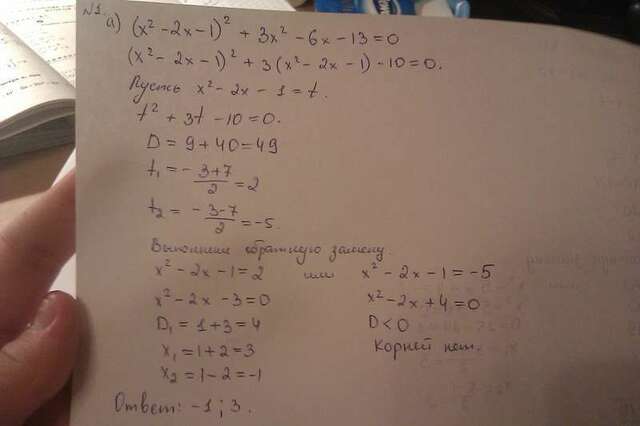 №1.
а) (x² - 2x - 1)² + 3x² - 6x - 13 = 0
(x² - 2x - 1)² + 3(x² - 2x - 1) - 10 = 0.
Пусть x² - 2x - 1 = t.
t² + 3t - 10 = 0.
D = 9 + 40 = 49
t₁ = -3+7/2 = 2
t₂ = -3-7/2 = -5.
Выполним обратную замену.
x² - 2x - 1 = 2 или x² - 2x - 1 = -5
x² - 2x - 3 = 0 x² - 2x + 4 = 0
D₁ = 1 + 3 = 4 D < 0
x₁ = 1 + 2 = 3 Корней нет.
x₂ = 1 - 2 = -1
Ответ: -1; 3.